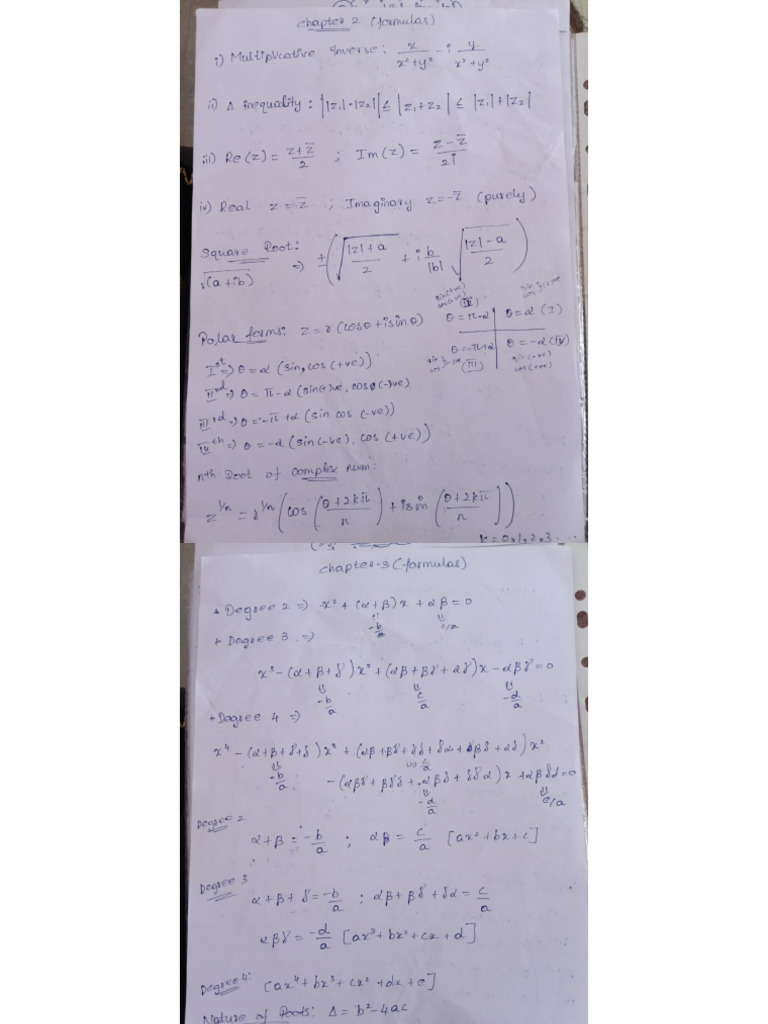 chapter 2 (formulas)
i) Multiplicative inverse: x/(x²+y²) - i y/(x²+y²)
ii) Δ inequality: ||z₁|-|z₂|| ≤ |z₁+z₂| ≤ |z₁|+|z₂|
iii) Re(z) = (z+z̄)/2 ; Im(z) = (z-z̄)/2i
iv) Real z=z̄ ; Imaginary z=-z̄ (purely)
Square Root:
√(a+ib) ⇒ ±(√((|z|+a)/2) + i b/|b| √((|z|-a)/2))
Polar forms: z=r(cosθ+isinθ)
sin(+ve)
cos(-ve)
(II)
θ=π-α
θ=α (I)
θ=-π+α
(III)
θ=-α (IV)
sin(-ve)
cos(+ve)
Iˢᵗ ⇒ θ=α (sin, cos (+ve))
IIⁿᵈ ⇒ θ=π-α (sin(+)ve, cosθ(-)ve)
IIIʳᵈ ⇒ θ=-π+α (sin cos (-ve))
IVᵗʰ ⇒ θ=-α (sin(-ve), cos(+ve))
nth Root of complex num:
z^(1/n) = r^(1/n) (cos((θ+2kπ)/n) + isin((θ+2kπ)/n))
k=0,1,2,3...
chapter-3 (formulas)
+ Degree 2 ⇒ x²+(α+β)x+αβ=0
-b/a c/a
+ Degree 3 ⇒
x³-(α+β+γ)x²+(αβ+βγ+αγ)x-αβγ=0
-b/a c/a -d/a
+ Dagree 4 ⇒
x⁴-(α+β+γ+δ)x³+(αβ+βγ+γδ+δα+βδ+αγ)x²
-b/a c/a
-(αβγ+βγδ+αβδ+γδα)x+αβγδ=0
-d/a e/a
Degree 2
α+β=-b/a ; αβ=c/a [ax²+bx+c]
Degree 3
α+β+γ=-b/a ; αβ+βγ+γα=c/a
αβγ=-d/a [ax³+bx²+cx+d]
Degree 4: [ax⁴+bx³+cx²+dx+e]
Nature of Roots: Δ=b²-4ac